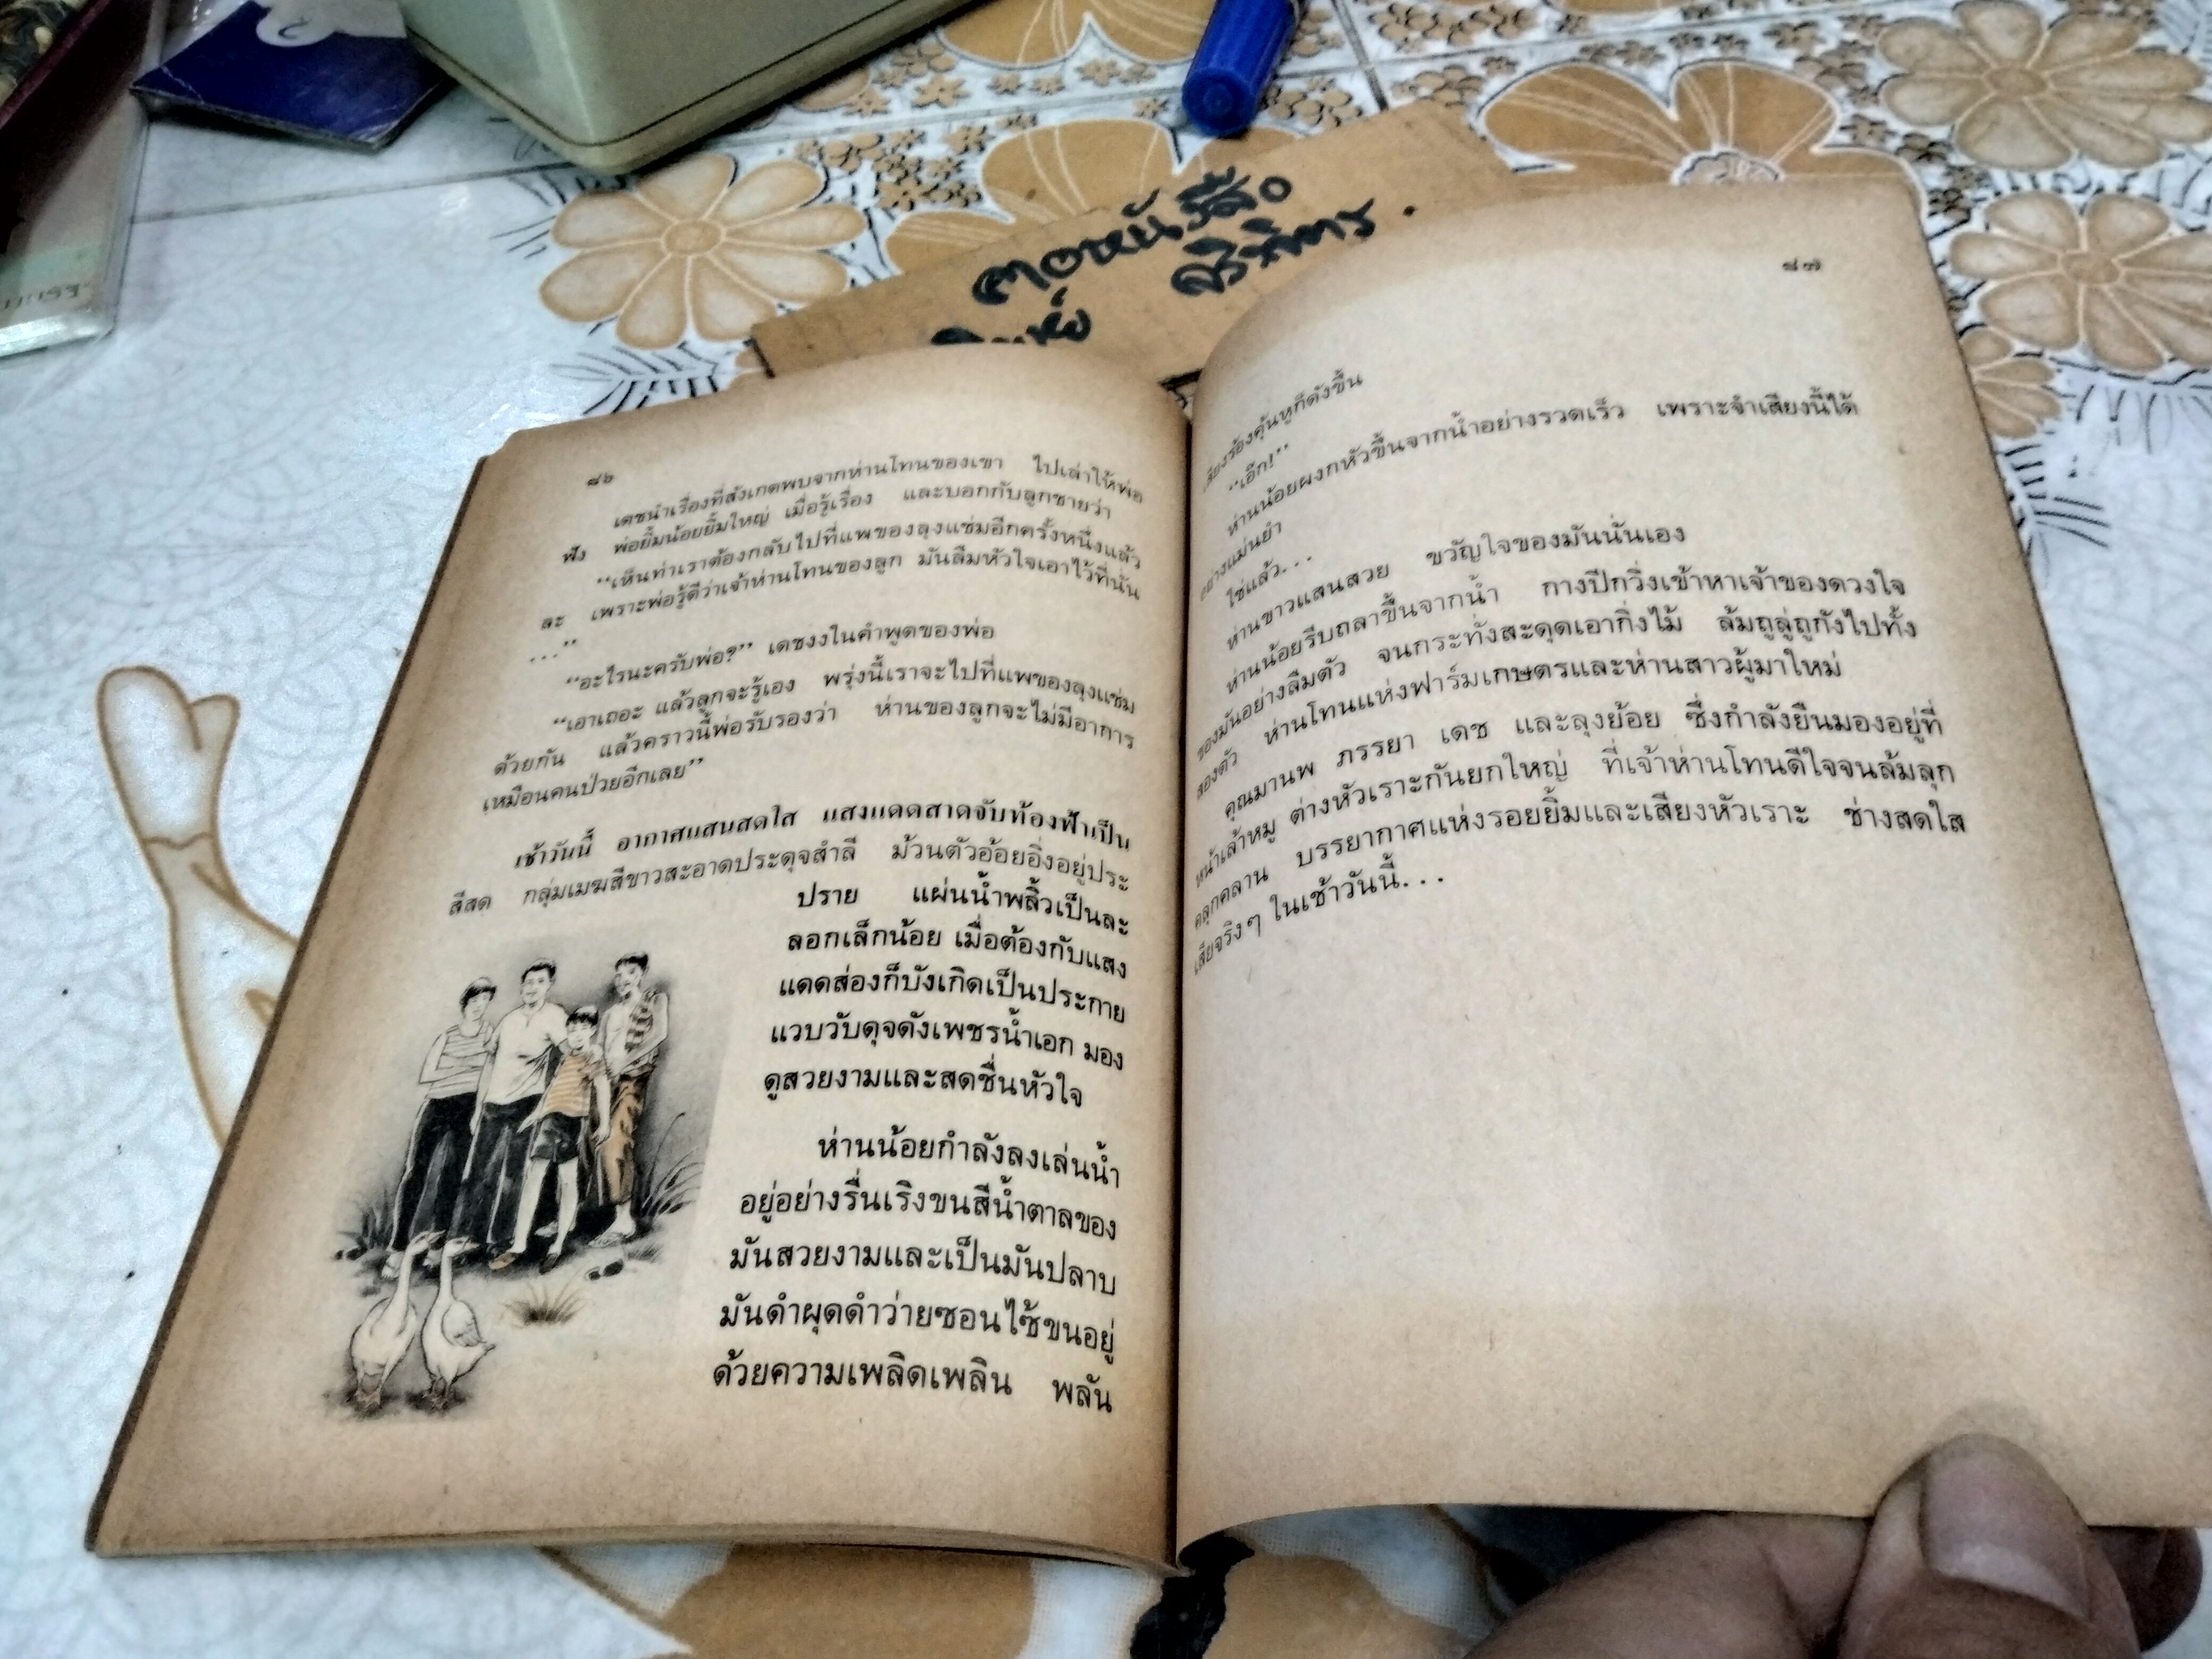 คอหนังสือ
จริจิตร.
๘๖
เดชนำเรื่องที่สังเกตพบจากห่านโทนของเขา ไปเล่าให้พ่อ
ฟัง พ่อยิ้มน้อยยิ้มใหญ่ เมื่อรู้เรื่อง และบอกกับลูกชายว่า
“เห็นท่าเราต้องกลับไปที่แพของลุงแช่มอีกครั้งหนึ่งแล้ว
ละ เพราะพ่อรู้ดีว่าเจ้าห่านโทนของลูก มันลืมหัวใจเอาไว้ที่นั่น
...”
“อะไรนะครับพ่อ?” เดชงงในคำพูดของพ่อ
“เอาเถอะ แล้วลูกจะรู้เอง พรุ่งนี้เราจะไปที่แพของลุงแช่ม
ด้วยกัน แล้วคราวนี้พ่อรับรองว่า ห่านของลูกจะไม่มีอาการ
เหมือนคนป่วยอีกเลย”
เช้าวันนี้ อากาศแสนสดใส แสงแดดสาดจับท้องฟ้าเป็น
สีสด กลุ่มเมฆสีขาวสะอาดประดุจสำลี ม้วนตัวอ้อยอิ่งอยู่ประ
ปราย แผ่นน้ำพลิ้วเป็นละ
ลอกเล็กน้อย เมื่อต้องกับแสง
แดดส่องก็บังเกิดเป็นประกาย
แวบวับดุจดังเพชรน้ำเอก มอง
ดูสวยงามและสดชื่นหัวใจ
ห่านน้อยกำลังลงเล่นน้ำ
อยู่อย่างรื่นเริงขนสีน้ำตาลของ
มันสวยงามและเป็นมันปลาบ
มันดำผุดดำว่ายซอนไซ้ขนอยู่
ด้วยความเพลิดเพลิน พลัน
๘๗
เสียงร้องคุ้นหูก็ดังขึ้น
“เอิก!”
ห่านน้อยผงกหัวขึ้นจากน้ำอย่างรวดเร็ว เพราะจำเสียงนี้ได้
อย่างแม่นยำ
ใช่แล้ว...
ห่านขาวแสนสวย ขวัญใจของมันนั่นเอง
ห่านน้อยรีบถลาขึ้นจากน้ำ กางปีกวิ่งเข้าหาเจ้าของดวงใจ
ของมันอย่างลืมตัว จนกระทั่งสะดุดเอากิ่งไม้ ล้มถูลู่ถูกังไปทั้ง
สองตัว ห่านโทนแห่งฟาร์มเกษตรและห่านสาวผู้มาใหม่
คุณมานพ ภรรยา เดช และลุงย้อย ซึ่งกำลังยืนมองอยู่ที่
หน้าเล้าหมู ต่างหัวเราะกันยกใหญ่ ที่เจ้าห่านโทนดีใจจนล้มลุก
คลุกคลาน บรรยากาศแห่งรอยยิ้มและเสียงหัวเราะ ช่างสดใส
เสียจริงๆ ในเช้าวันนี้...